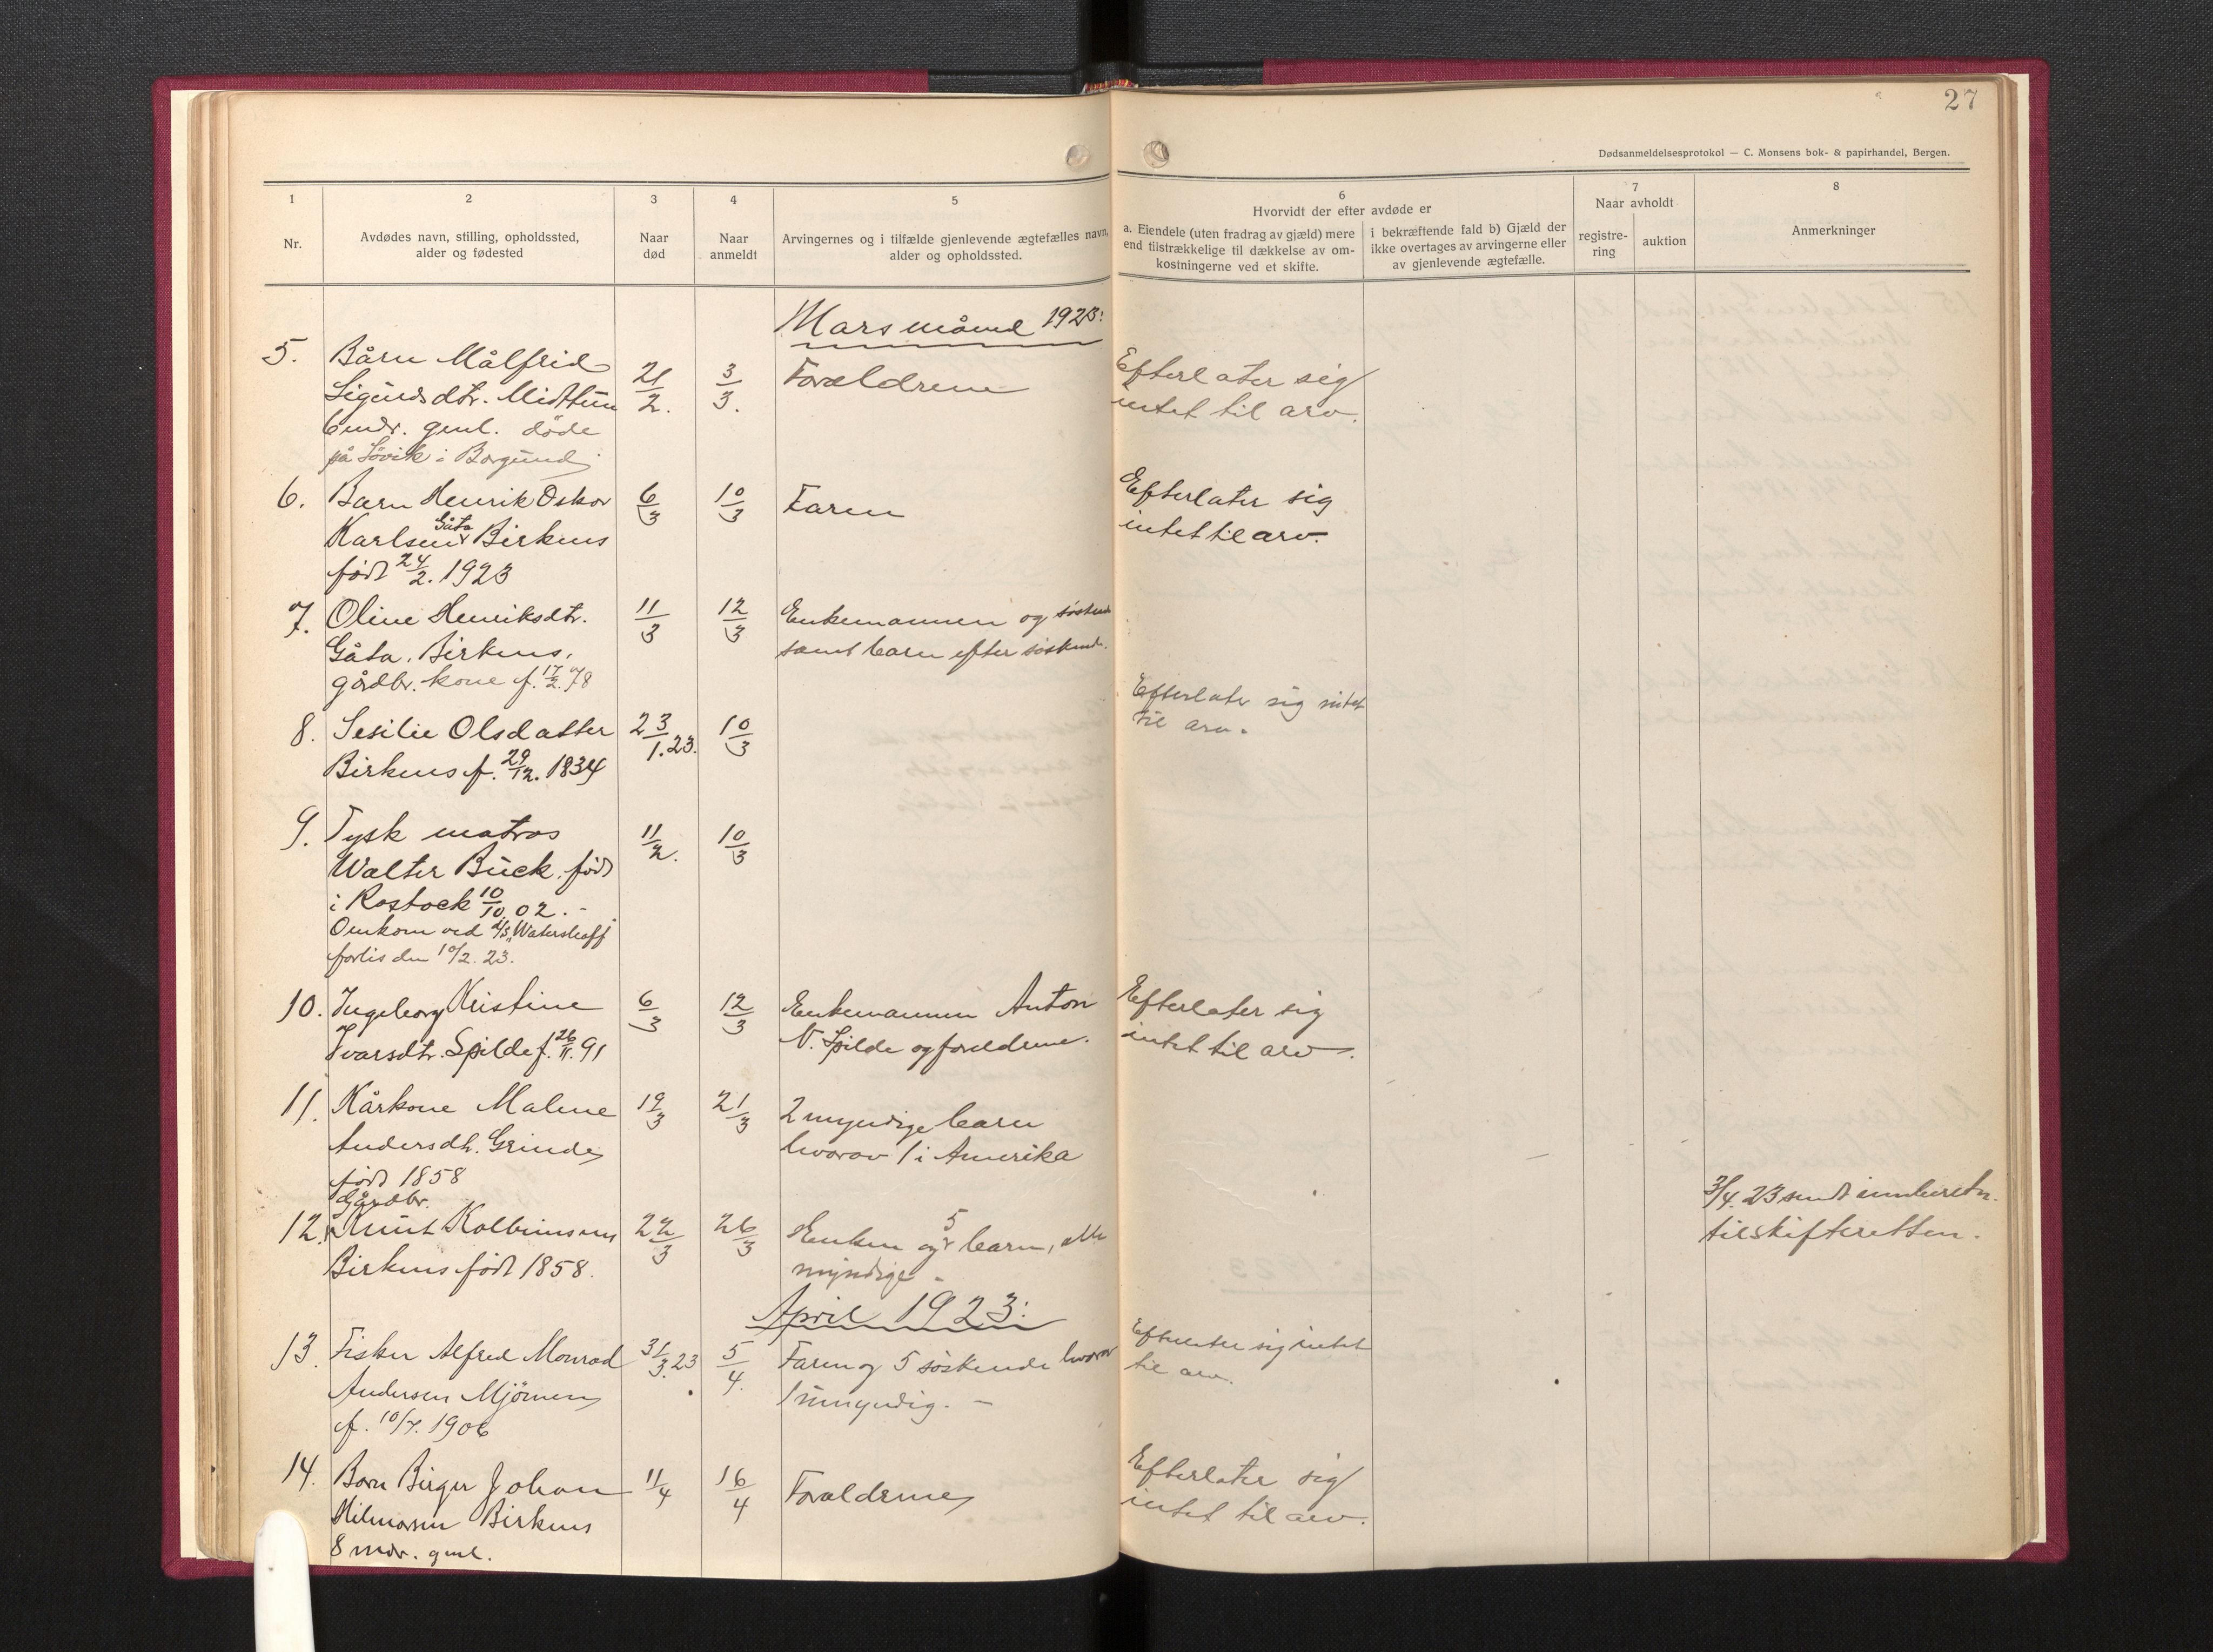 27
Dødsanmeldelsesprotokol — C. Monsens bok- & papirhandel, Bergen.
1
2
3
4
5
6
7
8
Nr.
Avdødes navn, stilling, opholdssted,
alder og fødested
Naar
død
Naar
anmeldt
Arvingernes og i tilfælde gjenlevende ægtefælles navn,
alder og opholdssted.
Hvorvidt der efter avdøde er
a. Eiendele (uten fradrag av gjæld) mere
end tilstrækkelige til dækkelse av om-
kostningerne ved et skifte.
i bekræftende fald b) Gjæld der
ikke overtages av arvingerne eller
av gjenlevende ægtefælle.
Naar avholdt
registre-
ring
auktion
Anmerkninger
Mars måned 1923:
5. Bårn Målfrid
Sigurdsdtr. Midttun
6 mdr. gml. døde
på Søvik i Borgund
21/2. 3/3.
Forældrene
Efterlater sig
intet til arv.
6. Barn Henrik Oskar
Karlsen Gåta Birknes
født 24/2. 1923
6/3 10/3
Faren
Efterlater sig
intet til arv.
7. Oline Henriksdtr.
Gåta. Birknes,
gårdbr. kone f. 17/2. 78
11/3 12/3
Enkemannen og søskende
samt barn efter søskende.
Efterlater sig intet
til arv.
8. Sesilie Olsdatter
Birknes f. 29/12. 1834
23/1.23. 10/3
9. Tysk matros
Walter Buck. født
i Rostock 10/10.02.-
Omkom ved d/s
forlis den 10/2. 23.
11/2. 10/3
10. Ingeborg Kristine
Ivarsdtr. Spilde f. 26/11. 91
6/3 12/3
Enkemannen Anton
N. Spilde og foreldrene.
Efterlater sig
intet til arv.
11. Kårkone Malene
Andersdtr. Grinde
født 1858
19/3 21/3
2 myndige barn
hvorav 1 i Amerika
Gårdbr.
12. Knut Kolbeinsen
Birknes født 1858.
22/3 26/3
Enken og 5 barn, alle
myndige -
3/4. 23 sendt innberetn.
til skifteretten.
April 1923:
13. Fisker Alfred Monrad
Andersen Mjömen
f. 10/7. 1906
31/3.23 5/4.
Faren og 5 søskende hvorav
1 umyndig. -
Efterlater sig intet
til arv.
14. Barn Birger Johan
Hilmarsen Birknes
8 mdr. gml.
11/4 16/4
Forældrene
Efterlater sig
intet til arv.